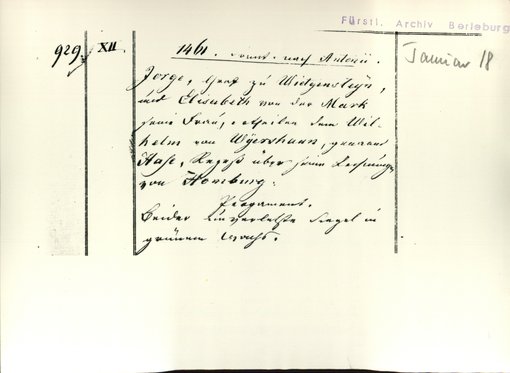 Fürstl. Archiv Berleburg
929. XII. 1461. Sonnt. nach Antonii. Januar 18
Jorge, Graf zu Widgensteyn,
und Elisabeth von der Mark
seine Frau, ertheilen dem Wil-
helm von genannt
Hase, Rezeß über seine Rechnung
von Homburg.
Pergament.
Beider unverletzte Siegel in
grünem Wachs.